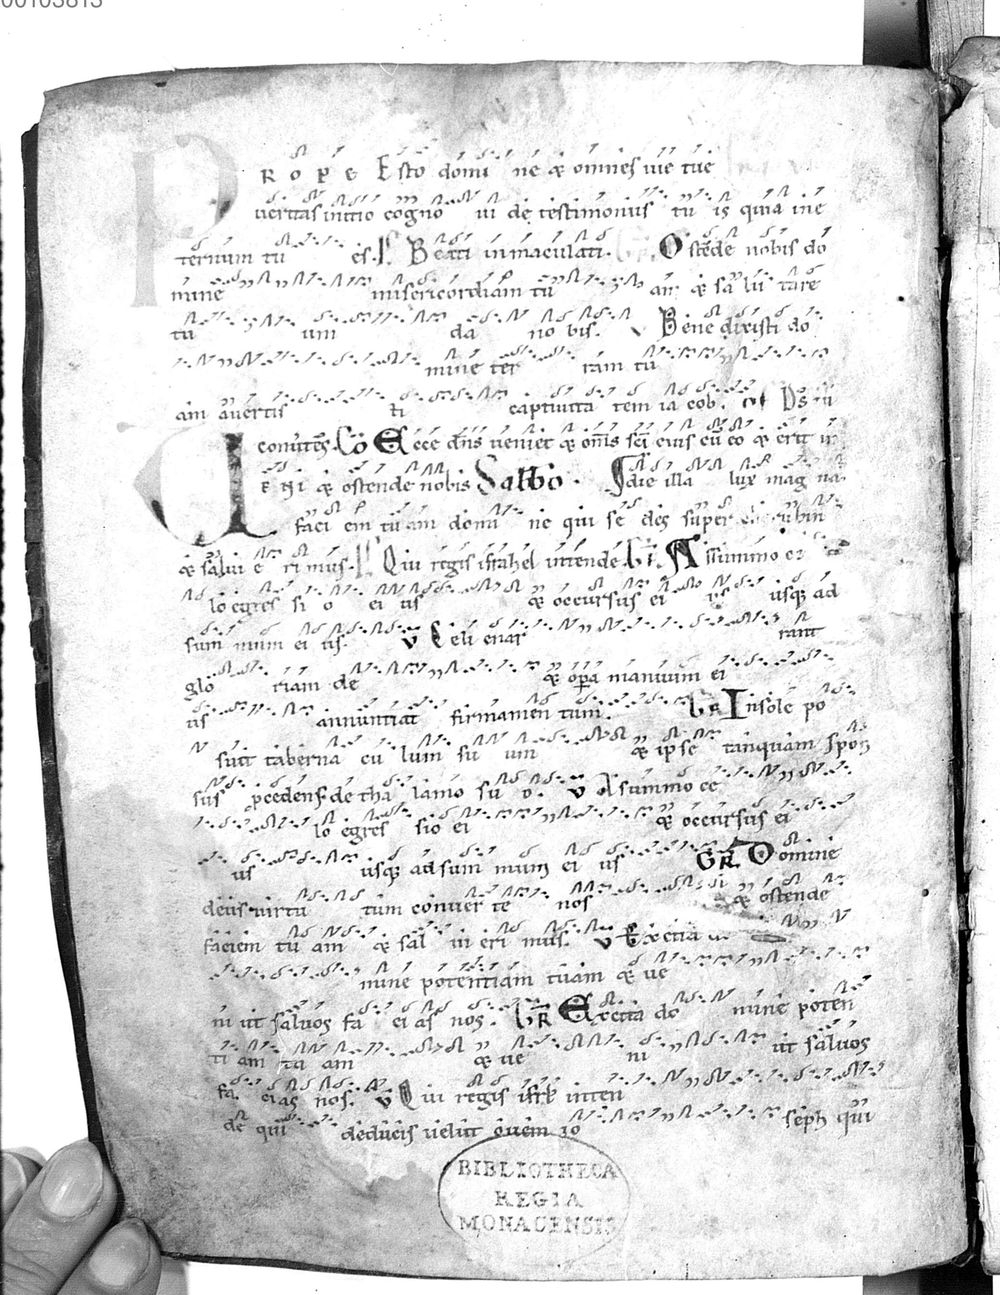 00103813
PROPE Esto domi ne & omnes uie tue
ueritas initio cogno ui de testimonius tu is quia in e
ternum tu es. Beati inmaculati. Ostēde nobis do
mine misericordiam tu am & salu tare
tu um da no bis. V Bene dixisti do
mine ter ram tu
am auertis ti captiuita tem iacob.
conuites. Cō Ecce dn̄s ueniet & om̄s sc̄i eius cū eo & erit in
& ostende nobis Sabbō. die illa lux mag na
faci em tuam domi ne qui se des super cherubin
& salui e ri mus. Qui regis israhel intende GR Assummo
lo egres si o ei us & occursus ei usq; ad
sum mum ei us. V Celi enar rant
glo riam de & opera manuum ei
us annuntiat firmamen tum. GR In sole po
suit taberna cu lum su um & ipse tanquam spon
sus pcedens de tha lamo su o. V A summo ce
lo egres sio ei & occursus ei
us usq; ad sum mum ei us GR Domine
deus uirtu tum conuer te nos & ostende
faciem tu am & sal ui eri mus. V Excita
mine potentiam tuam & ue
ni ut saluos fa ci as nos. GR Excita do mine poten
ti am tu am & ue ni ut saluos
fa cias nos. V Qui regis isrl inten
de qui deducis uelut ouem io seph qui
BIBLIOTHECA
REGIA
MONACENSIS